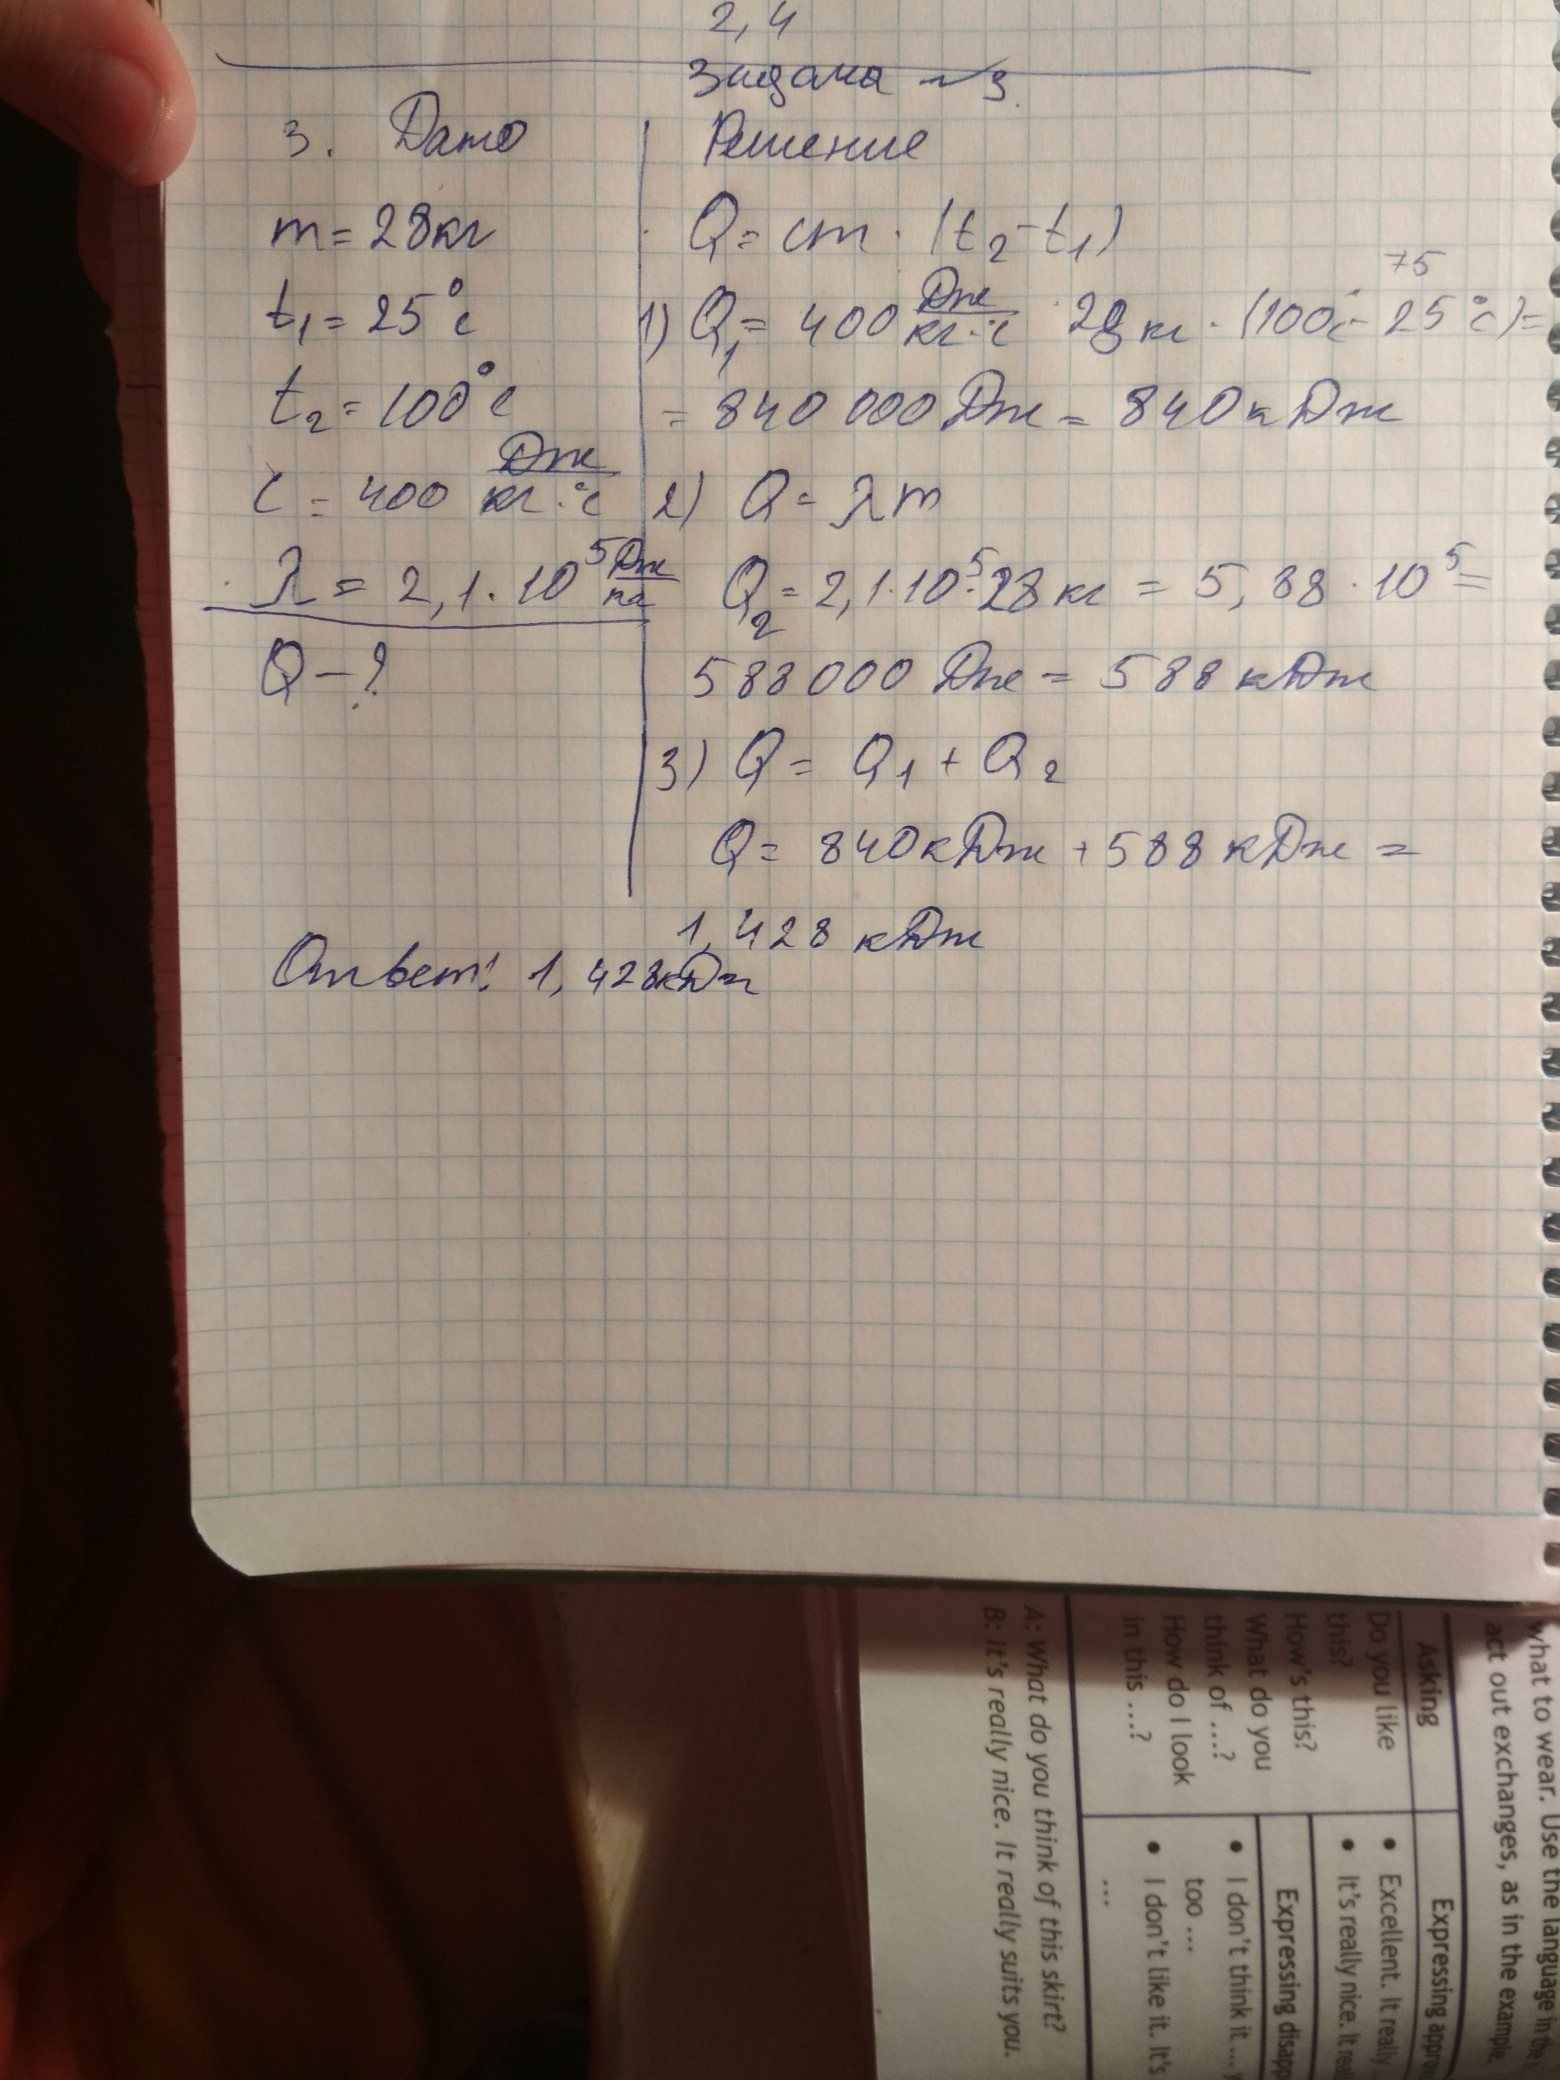 2,4
Задача №3.
3. Дано
Решение
m = 28кг
t₁ = 25°C
t₂ = 100°C
c = 400 Дж/кг·°C
λ = 2,1·10⁵ Дж/кг
Q - ?
Q = cm · (t₂ - t₁)
75
1) Q₁ = 400 Дж/кг·°C · 28 кг · (100°C - 25°C) =
= 840 000 Дж = 840 кДж
2) Q = λm
Q₂ = 2,1·10⁵·28 кг = 5,88·10⁵ =
588000 Дж = 588 кДж
3) Q = Q₁ + Q₂
Q = 840 кДж + 588 кДж =
1,428 кДж
Ответ: 1,428кДж
what to wear. Use the language in the
act out exchanges, as in the example.
Asking
Expressing approv
Do you like
this?
How's this?
What do you
think of ...?
How do I look
in this ...?
• Excellent. It really
• It's really nice. It real
Expressing disapp
• I don't think it ...
too ...
• I don't like it. It's
...
A: What do you think of this skirt?
B: It's really nice. It really suits you.